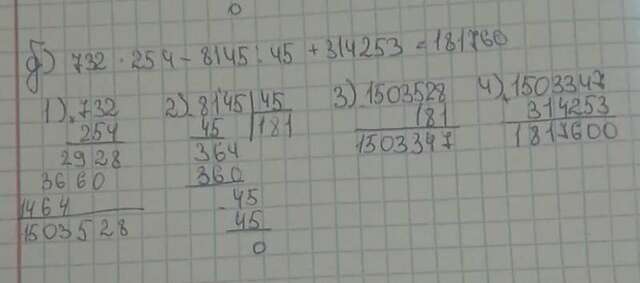 0
б) 732 · 254 - 8145 : 45 + 314253 = 181760
1) 732
254
2928
3660
1464
1503528
2) 8145 45
45 181
364
360
45
45
0
3) 1503528
181
1503347
4) 1503347
314253
1817600